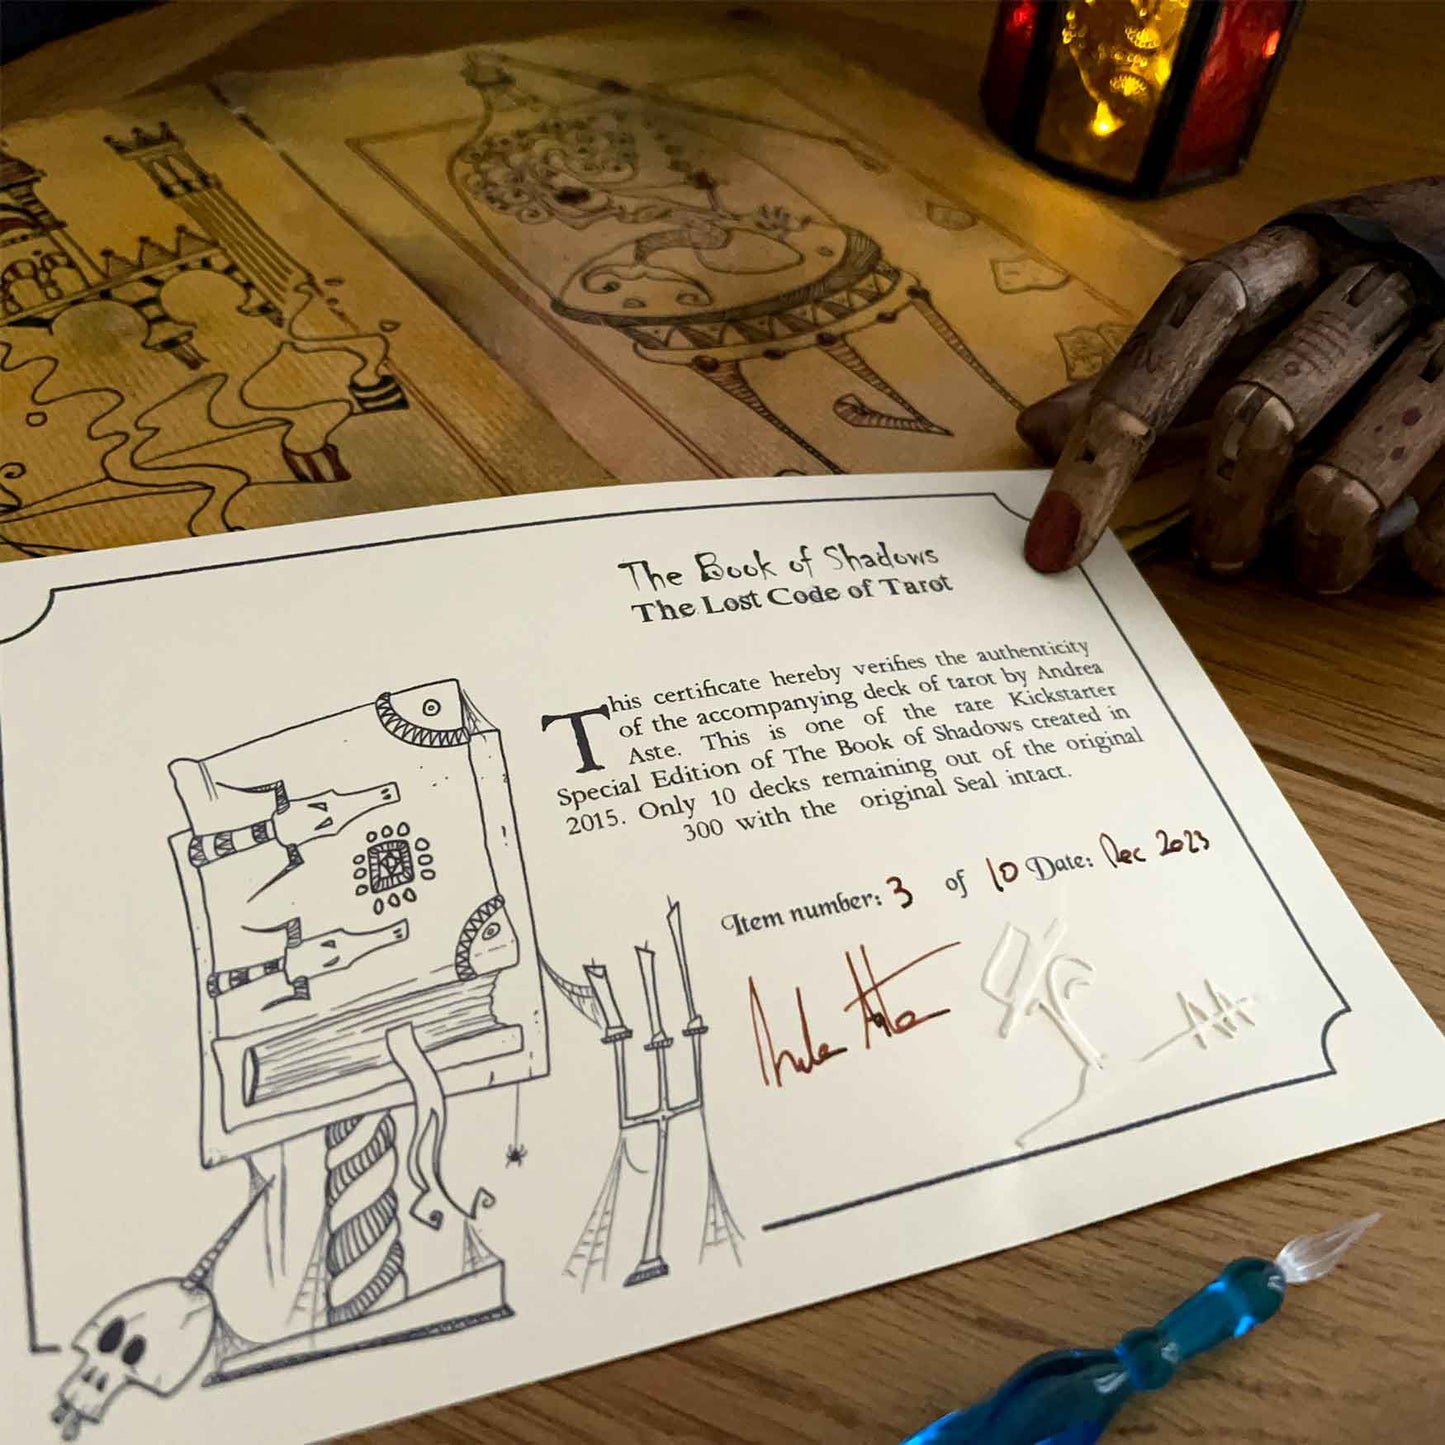 The Book of Shadows
The Lost Code of Tarot
This certificate hereby verifies the authenticity
of the accompanying deck of tarot by Andrea
Aste. This is one of the rare Kickstarter
Special Edition of The Book of Shadows created in
2015. Only 10 decks remaining out of the original
300 with the original Seal intact.
Item number: 3 of 10 Date: Dec 2023